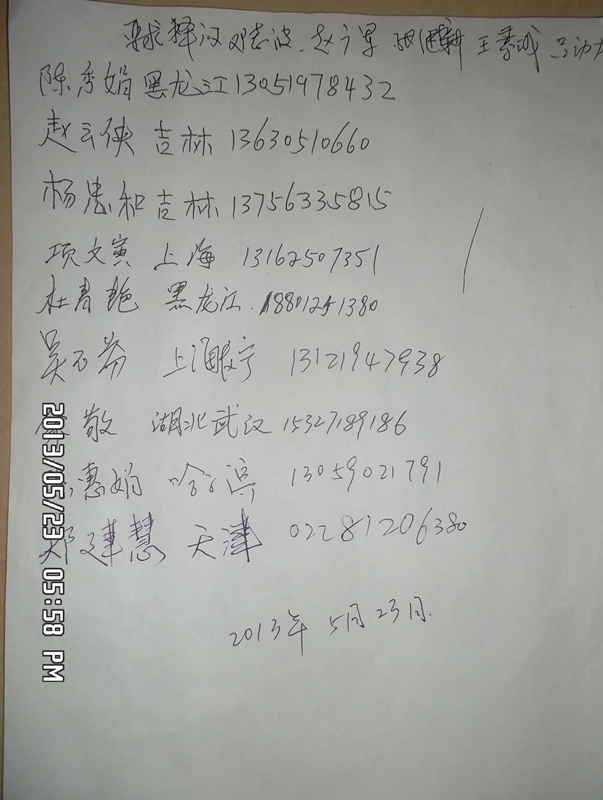 要求释放邓志波.赵广军 王
陈秀娟黑龙江13051978432
赵云侠 吉林 13630510660
杨忠和吉林13756335815
项文寅 上海 13162507351
杜春艳 黑龙江.18801251380
吴芬 上海宁 13121947938
敬 湖北武汉 15327189186
惠娟 哈尔滨 13059021791
邓建慧 天津 02281206380
2013年 5月23日.
2013/05/23 05:58 PM